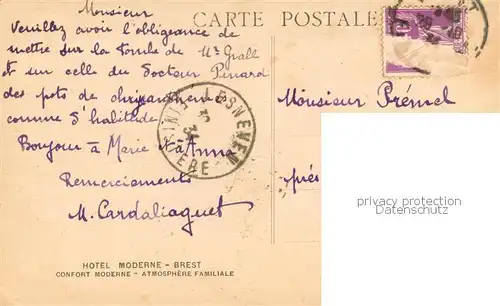 CARTE POSTALE
Monsieur
Veuillez avoir l'obligeance de
mettre sur la tombe de Mr Grall
et sur celle du Docteur Pinard
des pots de chrysanthème
comme d'habitude
Bonjour à Marie & à Anna
Remerciements
M. Cardaliaguet
LESNEVEN
FINISTERE
Monsieur Prémel
près
privacy protection
Datenschutz
HOTEL MODERNE - BREST
CONFORT MODERNE - ATMOSPHÈRE FAMILIALE